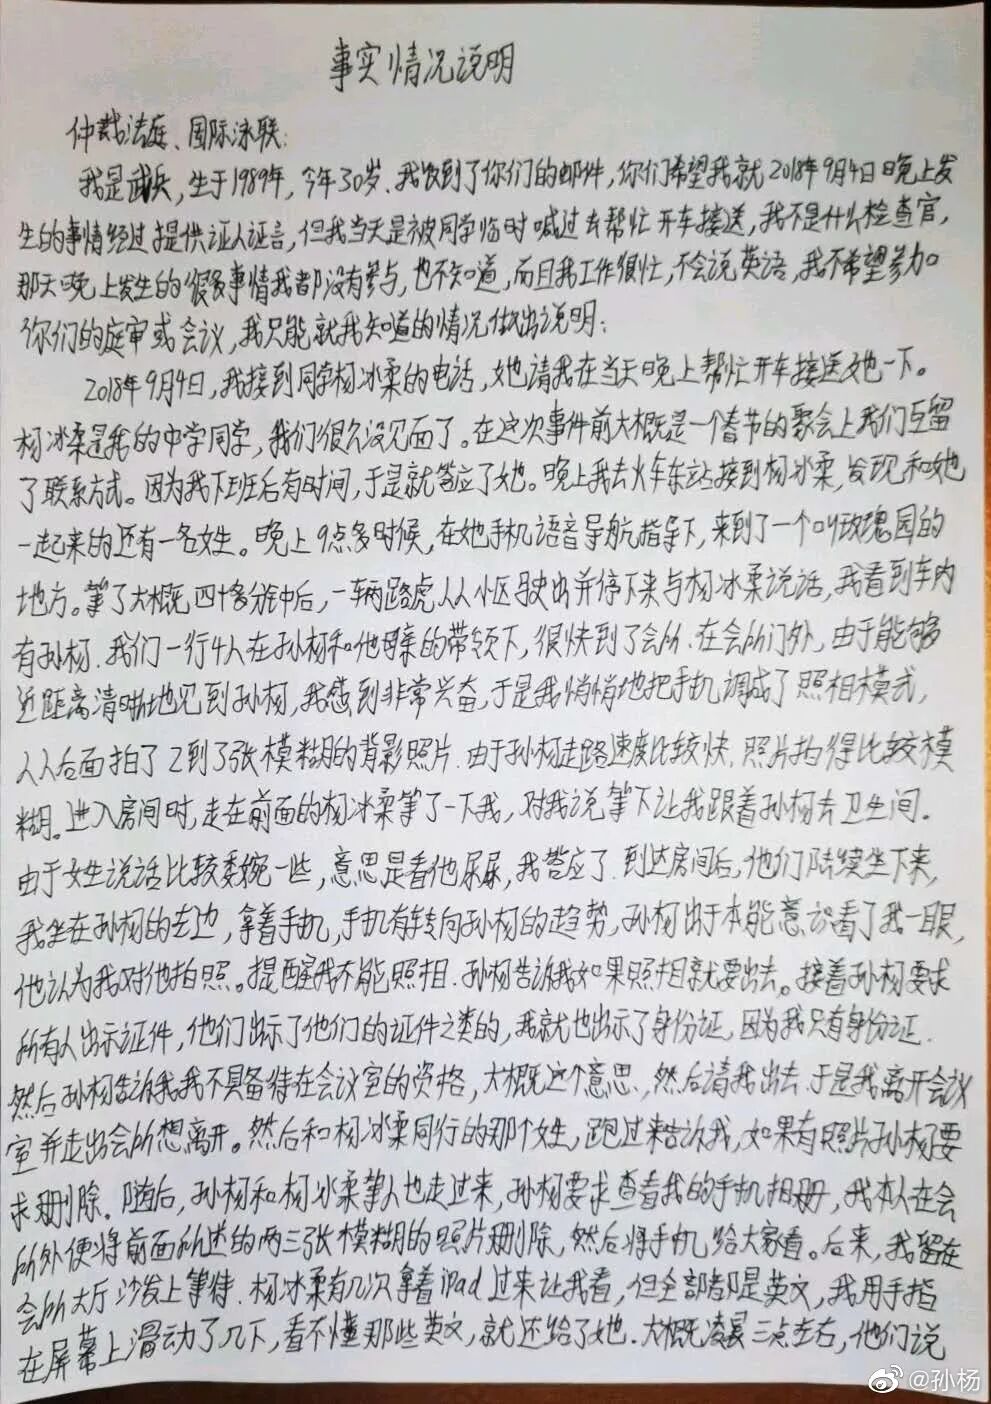 事实情况说明
仲裁法庭、国际泳联:
我是武兵,生于1989年,今年30岁.我收到了你们的邮件,你们希望我就2018年9月4日晚上发
生的事情经过提供证人证言,但我当天是被同学临时喊过去帮忙开车接送,我不是什么检查官,
那天晚上发生的很多事情我都没有参与,也不知道,而且我工作很忙,不会说英语,我不希望参加
你们的庭审或会议,我只能就我知道的情况做出说明:
2018年9月4日,我接到同学杨冰柔的电话,她请我在当天晚上帮忙开车接送她一下。
杨冰柔是我的中学同学,我们很久没见面了。在这次事件前大概是一个春节的聚会上我们互留
了联系方式。因为我下班后有时间,于是就答应了她。晚上我去火车东站接到杨冰柔,发现和她
一起来的还有一名女生。晚上9点多时候,在她手机语音导航指导下,来到了一个叫玫瑰园的
地方。等了大概四十多分钟后,一辆路虎从小区驶出并停下来与杨冰柔说话,我看到车内
有孙杨.我们一行4人在孙杨和他母亲的带领下,很快到了会所.在会所门外,由于能够
近距离清晰地见到孙杨,我感到非常兴奋,于是我悄悄地把手机调成了照相模式,
从后面拍了2到了张模糊的背影照片.由于孙杨走路速度比较快.照片拍得比较模
糊。进入房间时,走在前面的杨冰柔等了一下我,对我说等下让我跟着孙杨去卫生间.
由于女生说话比较委婉一些,意思是看他尿尿,我答应了.到达房间后,他们陆续坐下来,
我坐在孙杨的左边,拿着手机,手机有转向孙杨的趋势,孙杨出于本能意识看了我一眼,
他认为我对他拍照。提醒我不能照相.孙杨告诉我如果照相就要出去。接着孙杨要求
所有人出示证件,他们出示了他们的证件之类的,我就也出示了身份证,因为我只有身份证.
然后孙杨告诉我我不具备待在会议室的资格,大概这个意思,然后请我出去.于是我离开会议
室并走出会所想离开。然后和杨冰柔同行的那个女生,跑过来告诉我,如果有照片孙杨要
求删除.随后,孙杨和杨冰柔等人也走过来,孙杨要求查看我的手机相册,我本人在会
所外便将前面所述的两三张模糊的照片删除,然后将手机给大家看。后来,我留在
会所大厅沙发上等待.杨冰柔有几次拿着iPad过来让我看,但全部都是英文,我用手指
在屏幕上滑动了几下,看不懂那些英文,就还给了她.大概凌晨三点左右,他们说
@孙杨